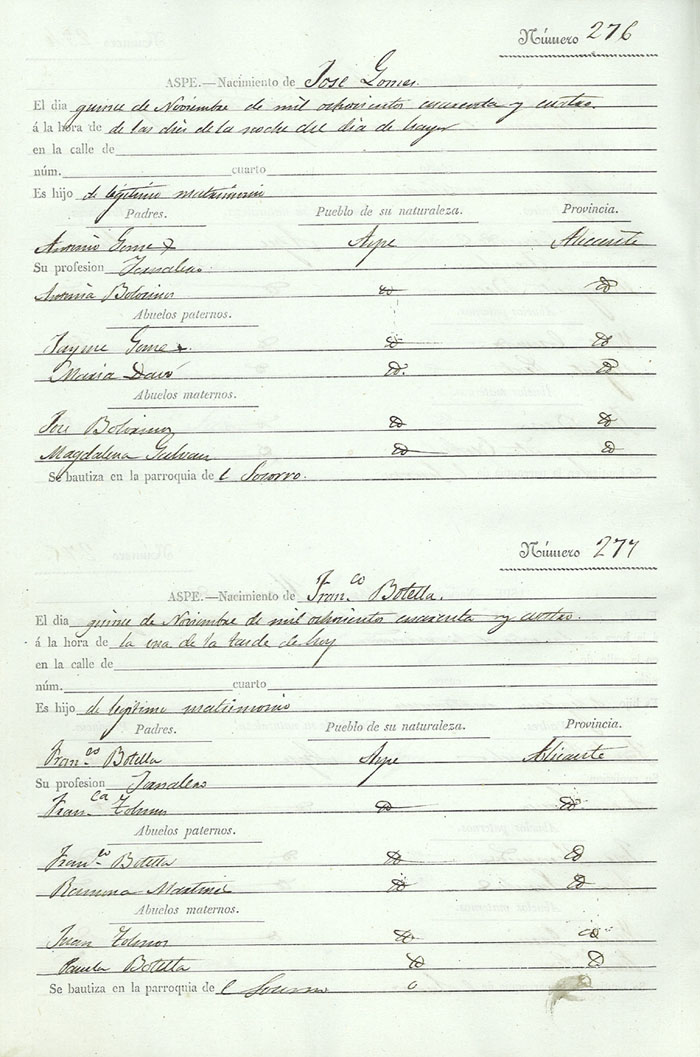 Número 276
ASPE.—Nacimiento de Jose Gomes.
El dia quince de Noviembre de mil ochocientos cuarenta y cuatro.
á la hora de de las dies de la noche del dia de hayer
en la calle de
núm. cuarto
Es hijo de legitimo matrimonio
Padres. Pueblo de su naturaleza. Provincia.
Antonio Gomez Aspe Alicante
Su profesion Jornalero
Antonia Botorino
Abuelos paternos.
Jayme Gomez
Maria
Abuelos maternos.
Jose
Magdalena Galvan
Se bautiza en la parroquia de l Socorro.
Número 277
ASPE.—Nacimiento de Fran.co Botella.
El dia quince de Noviembre de mil ochocientos cuarenta y cuatro.
á la hora de la una de la tarde de hoy
en la calle de
núm. cuarto
Es hijo de legitimo matrimonio
Padres. Pueblo de su naturaleza. Provincia.
Fran.co Botella Aspe Alicante
Su profesion Jornalero
Fran.ca
Abuelos paternos.
Fran.co Botella
Ramona Martinez
Abuelos maternos.
Juan
Botella
Se bautiza en la parroquia de l Socorro